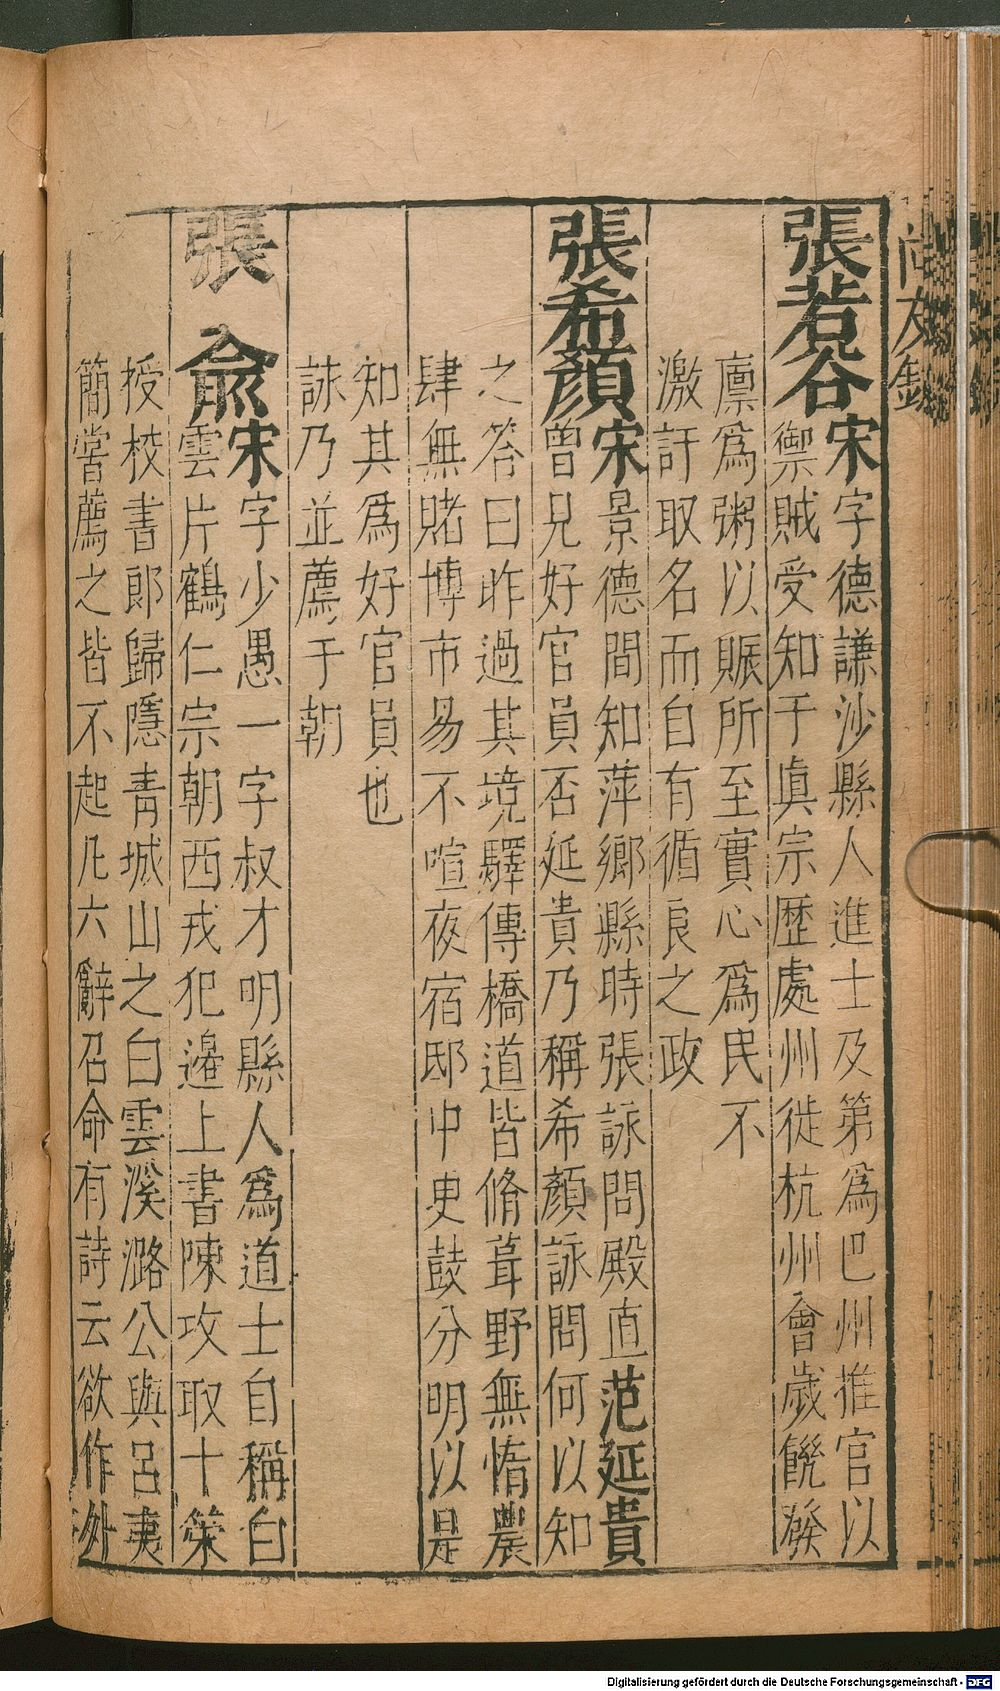 尚友錄
張若谷宋字德謙沙縣人進士及第爲巴州推官以
禦賊受知于眞宗歷處州徙杭州會歲饑發
廪爲粥以賑所至實心爲民不
激訐取名而自有循良之政
張希顏宋景德間知萍鄉縣時張詠問殿直范延貴
曾見好官員否延貴乃稱希顏詠問何以知
之答曰昨過其境驛傳橋道皆脩葺野無惰農
肆無賭博市易不喧夜宿邸中更鼓分明以是
知其爲好官員也
詠乃並薦于朝
張俞宋字少愚一字叔才明縣人爲道士自稱白
雲片鶴仁宗朝西戎犯邊上書陳攻取十策
授校書郎歸隱青城山之白雲溪潞公與呂夷
簡嘗薦之皆不起凡六辭召命有詩云欲作外
Digitalisierung gefördert durch die Deutsche Forschungsgemeinschaft - DFG